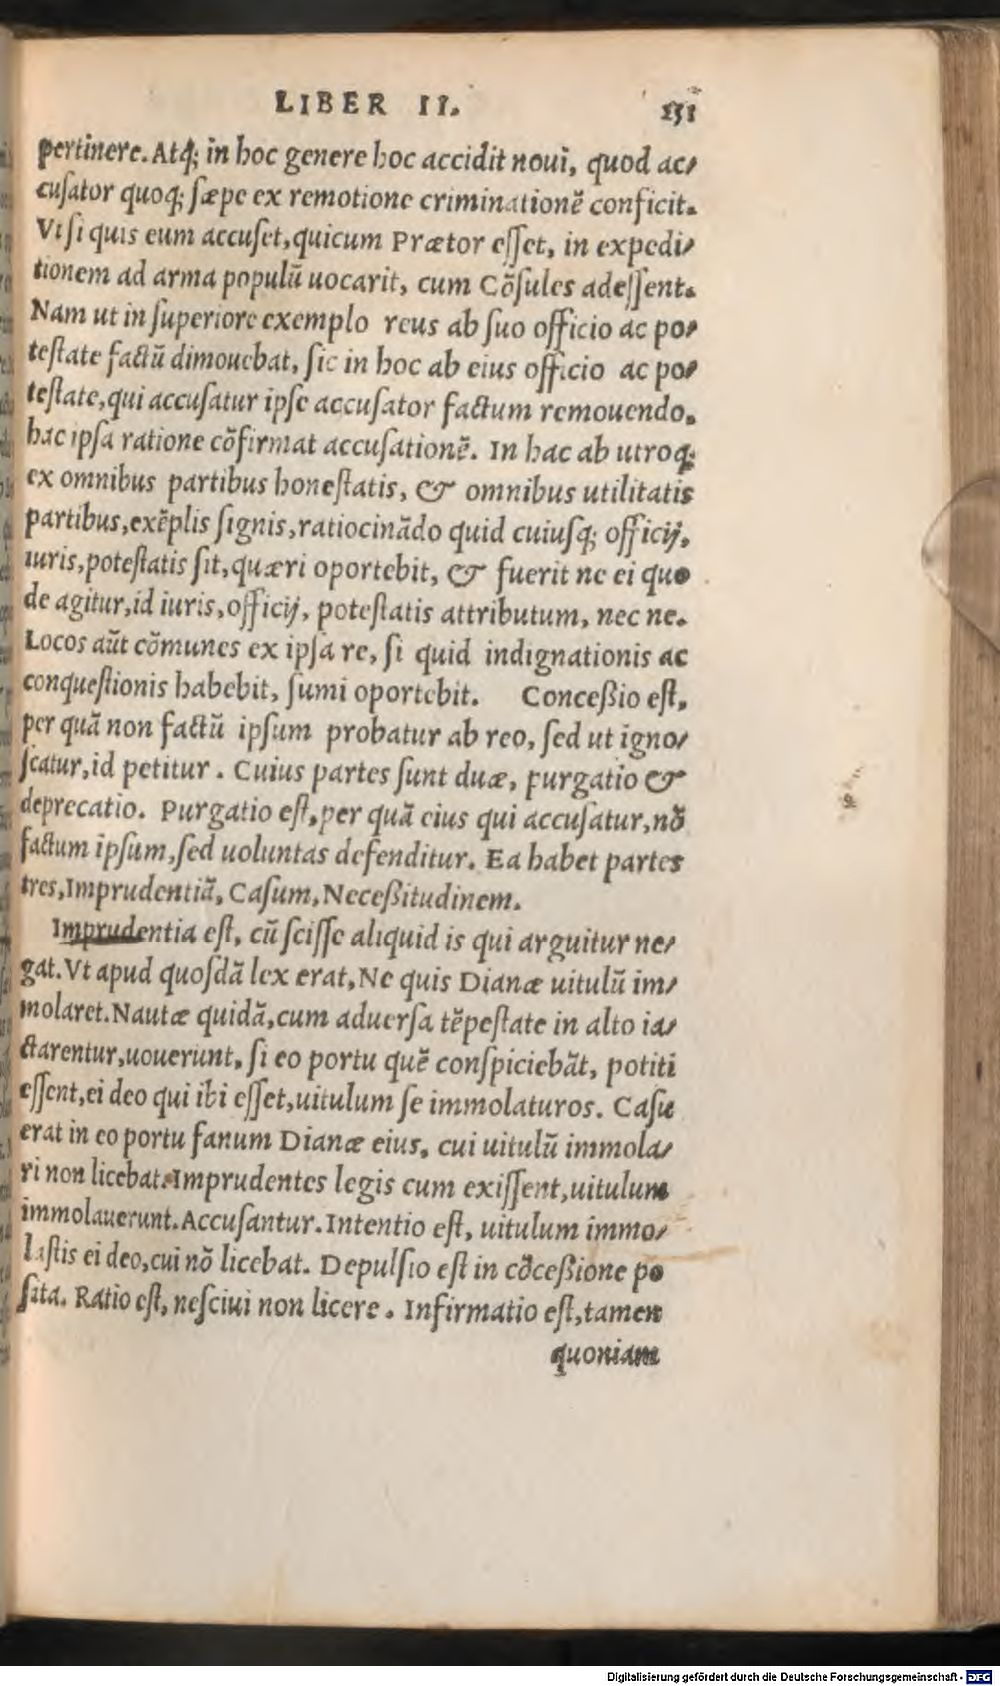 LIBER II. 151
pertinere. Atq; in hoc genere hoc accidit noui, quod ac⸗
cusator quoq; sæpe ex remotione criminationẽ conficit.
Vt si quis eum accuset, quicum Prætor esset, in expedi⸗
tionem ad arma populũ uocarit, cum Cõsules adessent.
Nam ut in superiore exemplo reus ab suo officio ac po⸗
testate factũ dimouebat, sic in hoc ab eius officio ac po⸗
testate, qui accusatur ipse accusator factum remouendo.
hac ipsa ratione cõfirmat accusationẽ. In hac ab utroq;
ex omnibus partibus honestatis, & omnibus utilitatis
partibus, exẽplis signis, ratiocinãdo quid cuiusq; officij,
iuris, potestatis sit, quæri oportebit, & fuerit ne ei quo
de agitur, id iuris, officij, potestatis attributum, nec ne.
Locos aũt cõmunes ex ipsa re, si quid indignationis ac
conquestionis habebit, sumi oportebit. Conceßio est,
per quã non factũ ipsum probatur ab reo, sed ut igno⸗
scatur, id petitur. Cuius partes sunt duæ, purgatio &
deprecatio. Purgatio est, per quã eius qui accusatur, nõ
factum ipsum, sed uoluntas defenditur. Ea habet partes
tres, Imprudentiã, Casum, Neceßitudinem.
Imprudentia est, cũ scisse aliquid is qui arguitur ne⸗
gat. Vt apud quosdã lex erat, Ne quis Dianæ uitulũ im⸗
molaret. Nautæ quidã, cum aduersa tẽpestate in alto ia⸗
ctarentur, uouerunt, si eo portu quẽ conspiciebãt, potiti
essent, ei deo qui ibi esset, uitulum se immolaturos. Casu
erat in eo portu fanum Dianæ eius, cui uitulũ immola⸗
ri non licebat. Imprudentes legis cum exissent, uitulum
immolauerunt. Accusantur. Intentio est, uitulum immo⸗
lastis ei deo, cui nõ licebat. Depulsio est in cõceßione po
sita. Ratio est, nesciui non licere. Infirmatio est, tamen
quoniam
Digitalisierung gefördert durch die Deutsche Forschungsgemeinschaft - DFG